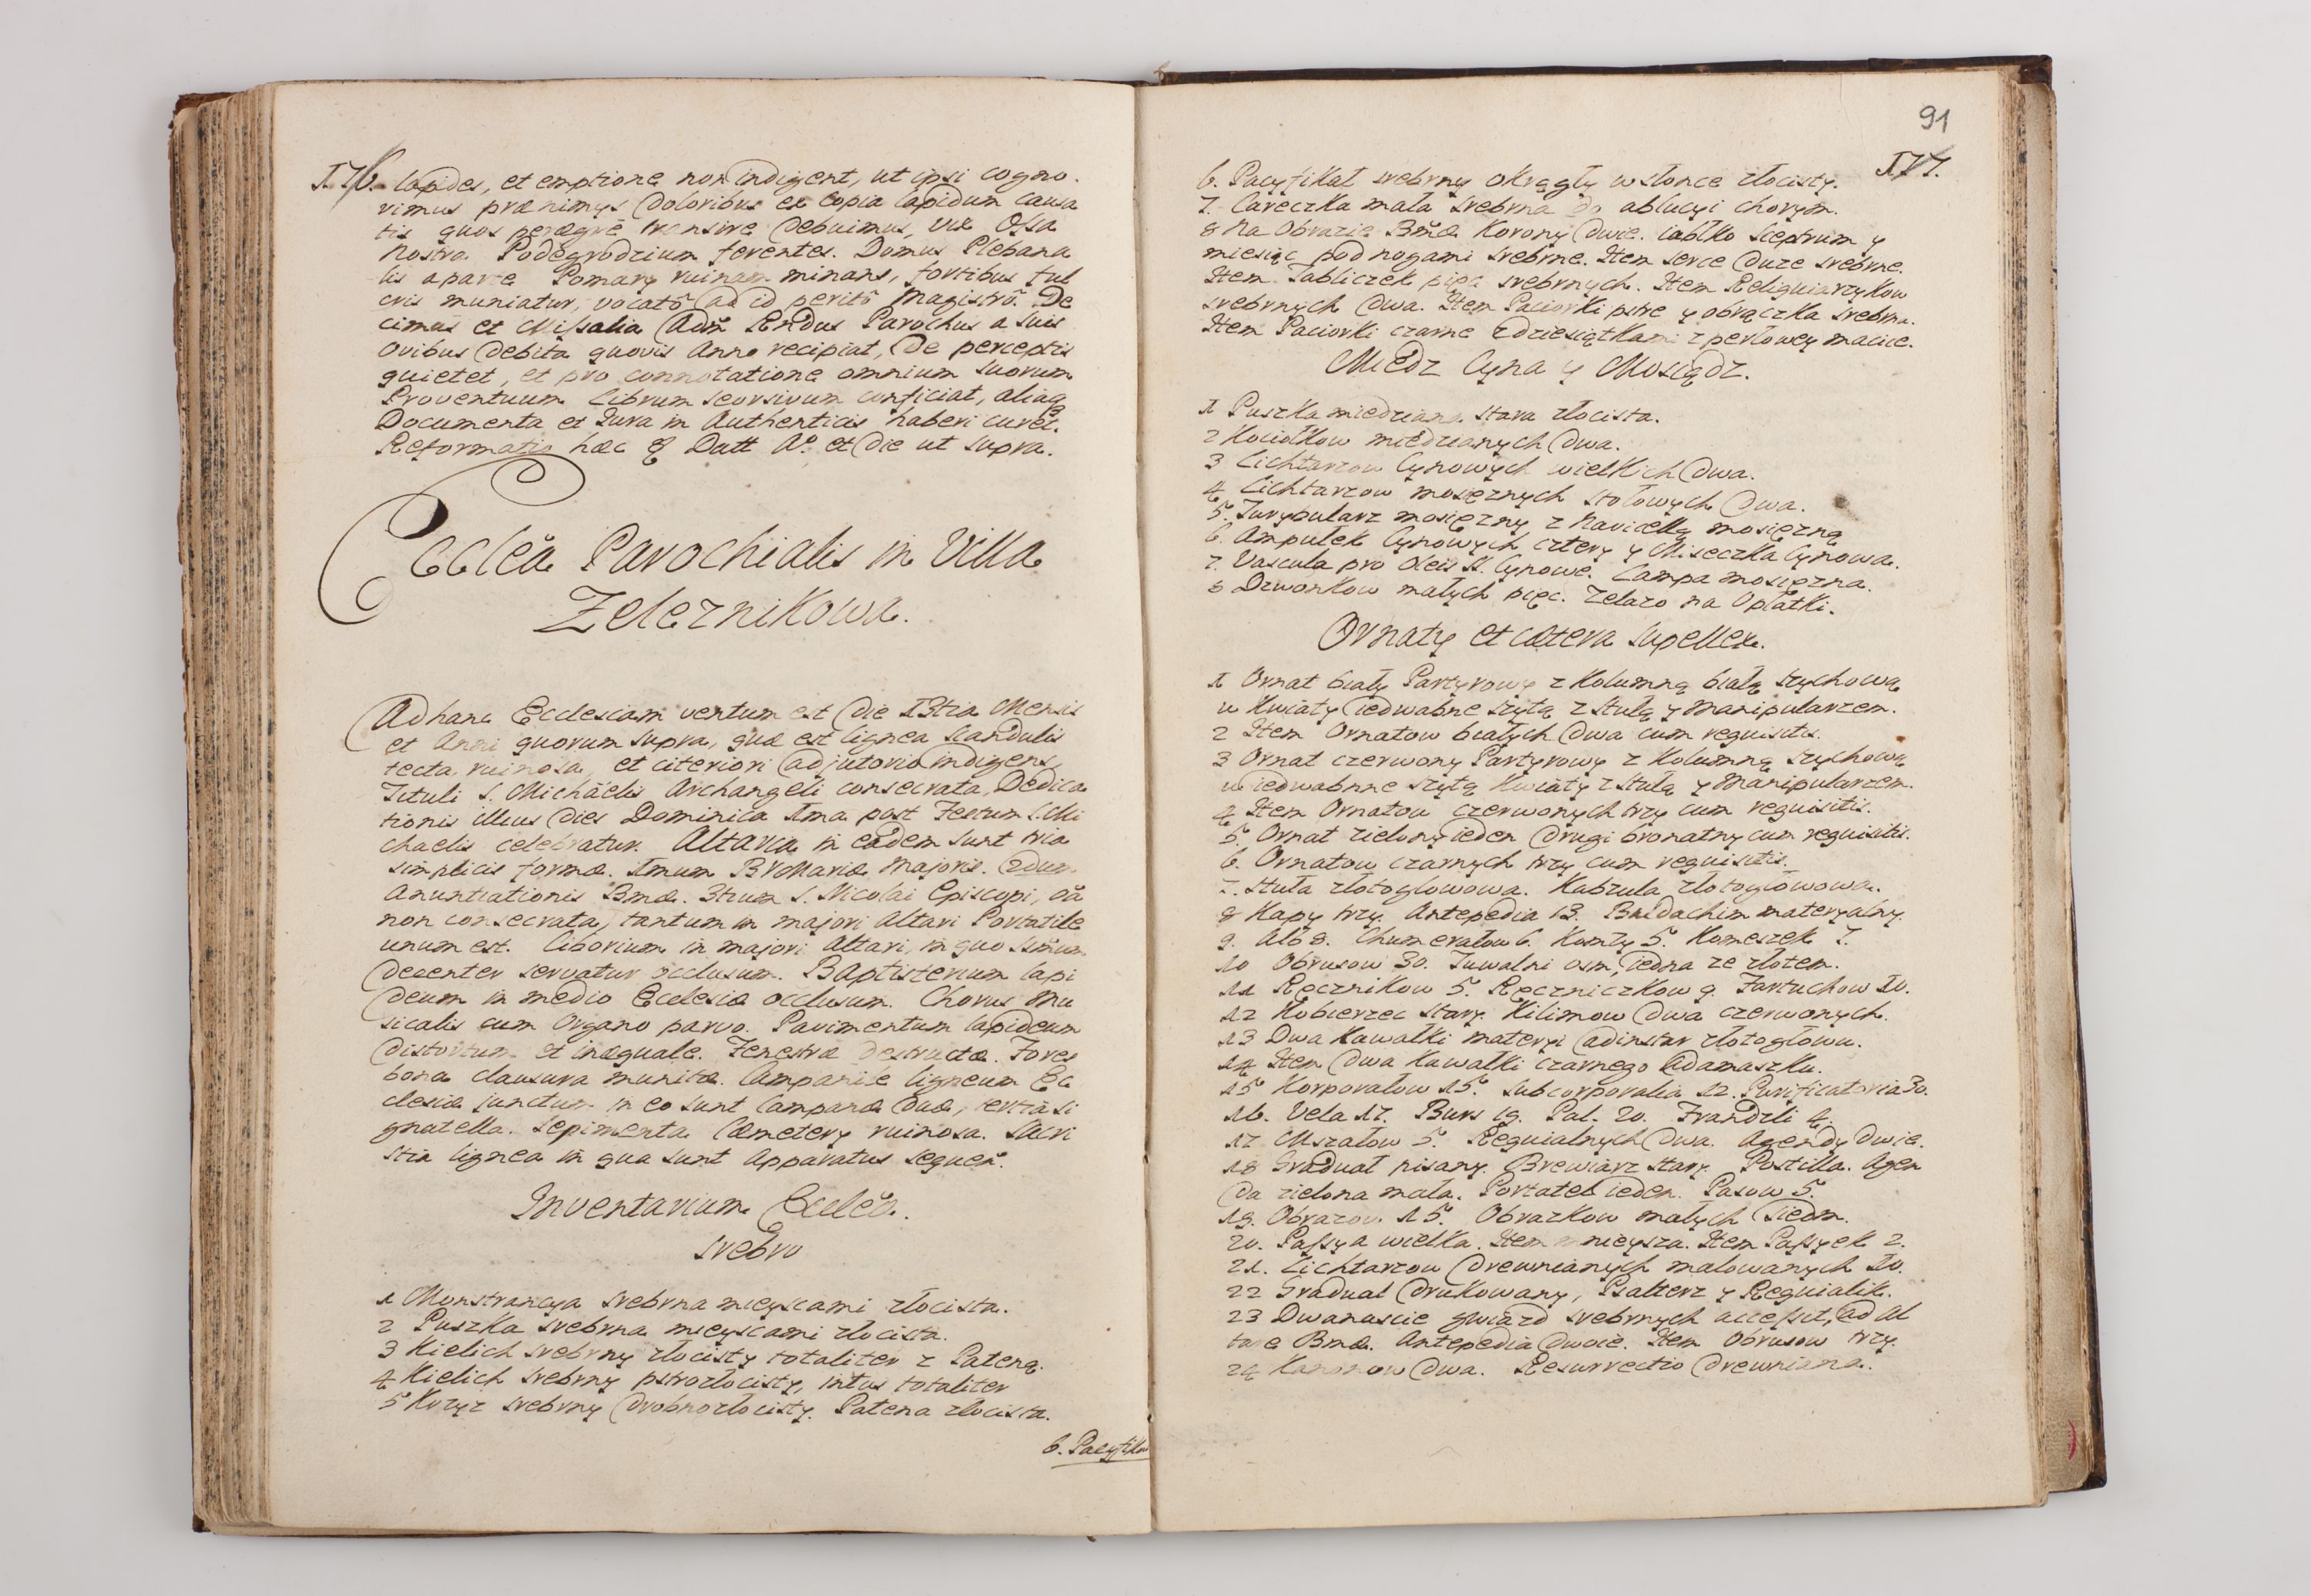 176. lapides, et emptione non indigent, ut ipsi cogno-
vimus prænimys doloribus ex copia lapidum causa
tis quos peræegre transire debuimus, vix Ossa
nostra Podegrodzium ferentes. Domus Plebana
lis a parte Pomary ruinam minans, fortibus ful
cris muniatur, vocatô ad id peritô Magistrô. De
cimas et Missalia Adm̃ Rndus Parochus a suis
Ovibus debita quovis Anno recipiat, de perceptis
quietet, et pro connotatione omnium suorum
Proventuum Librum seorsivum conficiat, aliaq
Documenta et Jura in Authenticis haberi curet.
Reformatio hæc Datt Aº. et die ut supra.
Ecclẽa Parochialis in Villa
Zeleznikowa.
Ad hanc Ecclesiam ventum est die 13tia Mensis
et Anni quorum supra, quæ est lignea scandulis
tecta ruinosa, et citeriori adjutorio indigens,
Tituli S. Michäelis Archangeli consecrata, Dedica
tionis illius dies Dominica 1ma post Festum S. Mi
chaelis celebratur. Altaria in eadem sunt tria
simplicis formæ. 1mum BVMariæ Majoris. 2dum
Anuntiationis Bmæ. 3tium S. Nicolai Episcopi, oã
non consecrata, tantum in majori Altari Portatile
unum est. Ciborium in majori Altari, in quo Ssmum
decenter servatur occlusum. Baptisterium lapi
deum in medio Ecclesiæ occlusum. Chorus Mu
sicalis cum Organo parvo. Pavimentum lapideum
distortum et inæquale. Fenestræ destructæ. Fores
bona clausura munitæ. Campanile ligneum Ec
clesiæ junctum in eo sunt Campanæ duæ, tertia si
gnatella. Sepimenta Cæmetery ruinosa. Sacri
stia lignea in qua sunt Apparatus sequeñ.
Inventarium Ecclẽæ.
Srebro
1 Monstrancya srebrna mieyscami złocista.
2 Puszka srebrna mieyscami złocista.
3 Kielich srebrny złocisty totaliter z Pateną.
4 Kielich srebrny pstrozłocisty, intus totaliter
5 Krzyz srebrny drobnozłocisty. Patena złocista.
6. Pacyfikał
91
177.
6. Pacyfikał srebrny okrągły w słonce złocisty.
7. Careczka mała srebrna do ablucyi chorym.
8 Na Obrazie Bmæ Korony dwie. iabłko Sceptrum y
miesiąc pod nogami srebrne. Item serce duze srebrne.
Item Tabliczek pięc srebrnych. Item Religuiarzykow
srebrnych dwa. Item Paciorki pstre y obrączka srebrna.
Item Paciorki czarne z dziesiątkami z perłowey macice.
Miedz Cyna y Mosiądz.
1 Puszka miedziana stara złocista.
2 Kociołkow miedzianych dwa.
3 Lichtarzow Cynowych wielkich dwa.
4 Lichtarzow mosięznych stołowych dwa.
5. Turybularz mosięzny z Navicellą mosięzną
6. Ampułek Cynowych cztery y Miseczka Cynowa.
7. Vascula pro Oleis S. Cynowe. Lampa mosięzna.
8 Dzwonkow małych pięc. Zelazo na Opłatki.
Ornaty et cætera supellex.
1 Ornat biały Partyrowy z Kolumną białą sztychową
w Kwiaty iedwabne szytą z Stułą y Manipularzem.
2 Item Ornatow białych dwa cum requisitis.
3 Ornat czerwony Partyrowy z Kolumną sztychową
w iedwabnne szytą Kwiaty z Stułą y Manipularzem.
4 Item Ornatow czerwonych trzy cum requisitis.
5. Ornat zielony ieden drugi bronatny cum requisitis.
6. Ornatow czarnych trzy cum requisitis.
7. Stuła złotogłowowa. Kabzula złotogłowowa.
8 Kapy trzy. Antepedia 13. Baldachim materyalny.
9. Alb 8. Chumerałow 6. Komzy 5. Komeszek 7.
10 Obrusow 30. Tuwalni osm, iedna ze złotem.
11 Ręcznikow 5. Ręczniczkow 9. Fartuchow 10.
12 Kobierzec stary. Kilimow dwa czerwonych.
13 Dwa Kawałki materyi adinstar złotogłowu.
14 Item dwa Kawałki czarnego Adamaszku.
15 Korporałow 15. Subcorporalia 12. Purificatoria 30.
16. Vela 17. Burs 19. Pal. 20. Frandzli 4.
17 Mszałow 5. Requialnych dwa. Agendy dwie.
18 Graduał pisany. Brewiarz stary. Postilla. Agen
da zielona mała. Portatel ieden. Pasow 5.
19. Obrazow 15. Obrazkow małych siedm.
20. Passya wielka. Item mnieysza. Item Passyek 2.
21. Lichtarzow drewnianych malowanych 10.
22 Graduał drukowany, Psałterz y Requialik.
23 Dwanascie gwiazd srebrnych accessit, ad Al
tare Bmæ. Antepedia dwoie. Item Obrusow trzy.
24 Kanonow dwa. Resurrectio drewniana.